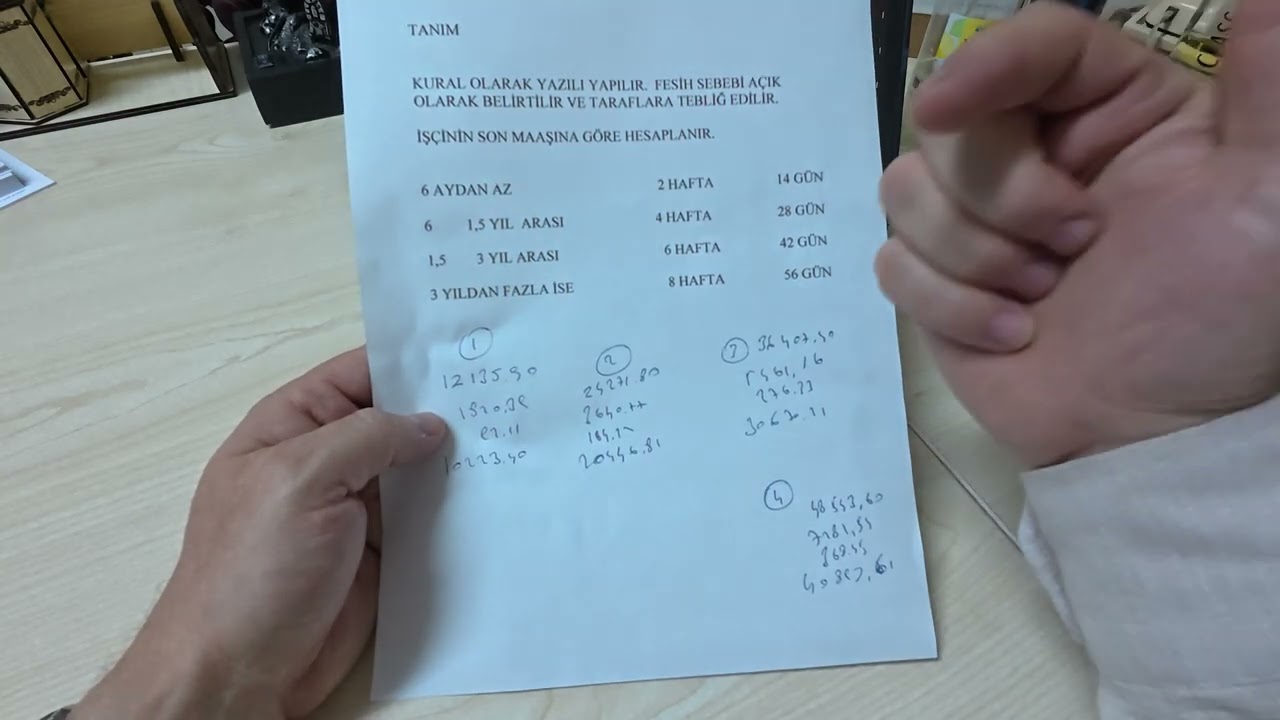 TANIM
KURAL OLARAK YAZILI YAPILIR. FESİH SEBEBİ AÇIK
OLARAK BELİRTİLİR VE TARAFLARA TEBLİĞ EDİLİR.
İŞÇİNİN SON MAAŞINA GÖRE HESAPLANIR.
6 AYDAN AZ 2 HAFTA 14 GÜN
6 1,5 YIL ARASI 4 HAFTA 28 GÜN
1,5 3 YIL ARASI 6 HAFTA 42 GÜN
3 YILDAN FAZLA İSE 8 HAFTA 56 GÜN
1
12135.90
10223.40
2
24271.80
20446.81
3
36407.40
4
48543,60
7281,54